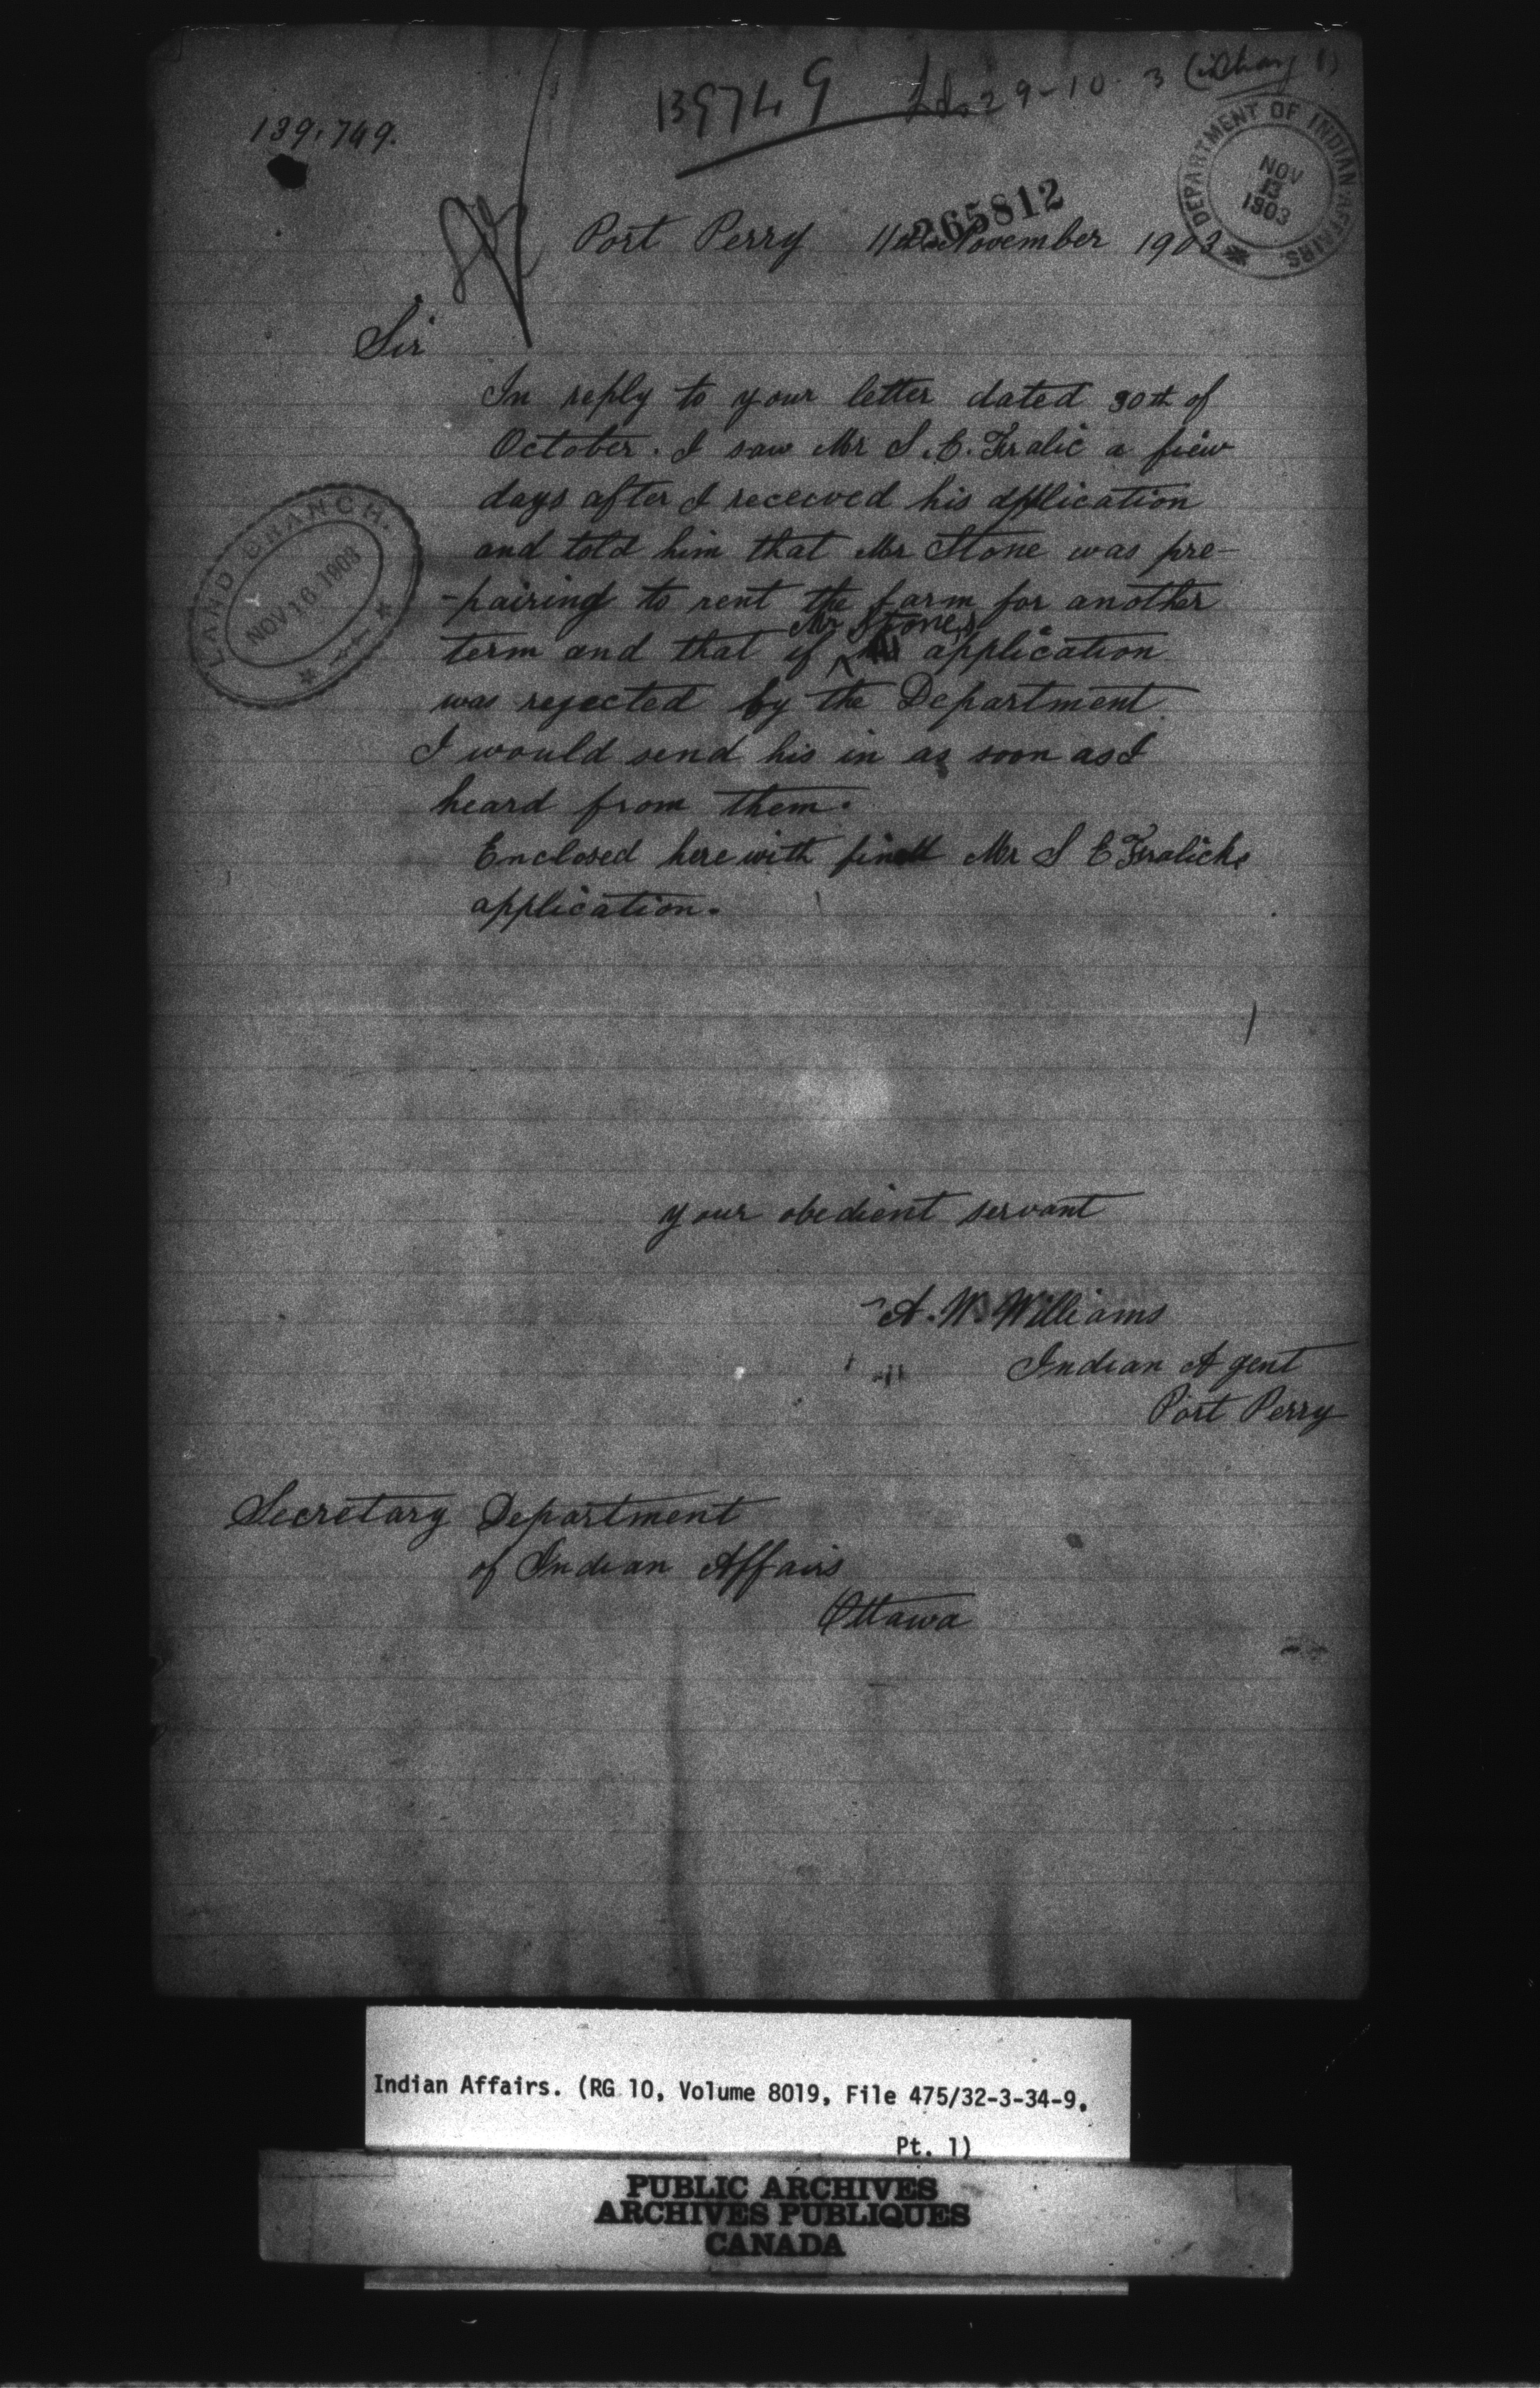 139749
29-10-3
139,749.
DEPARTMENT OF INDIAN AFFAIRS.
NOV
13
1903
265812
Port Perry 11th November 1903
Sir
In reply to your letter dated 30th of
October. I saw Mr S. E. Fralic a fiew
days after I receeved his application
and told him that Mr Stone was pre-
-pairing to rent the farm for another
Mr Stones
term and that if application
was rejected by the Department
I would send his in as soon as I
heard from them.
Enclosed herewith find Mr S E Fralicks
application.
LAND BRANCH.
NOV 16 1903
your obedient servant
A. W. Williams
Indian Agent
Port Perry
Secretary Department
of Indian Affairs
Ottawa
Indian Affairs. (RG 10, Volume 8019, File 475/32-3-34-9,
Pt. 1)
PUBLIC ARCHIVES
ARCHIVES PUBLIQUES
CANADA